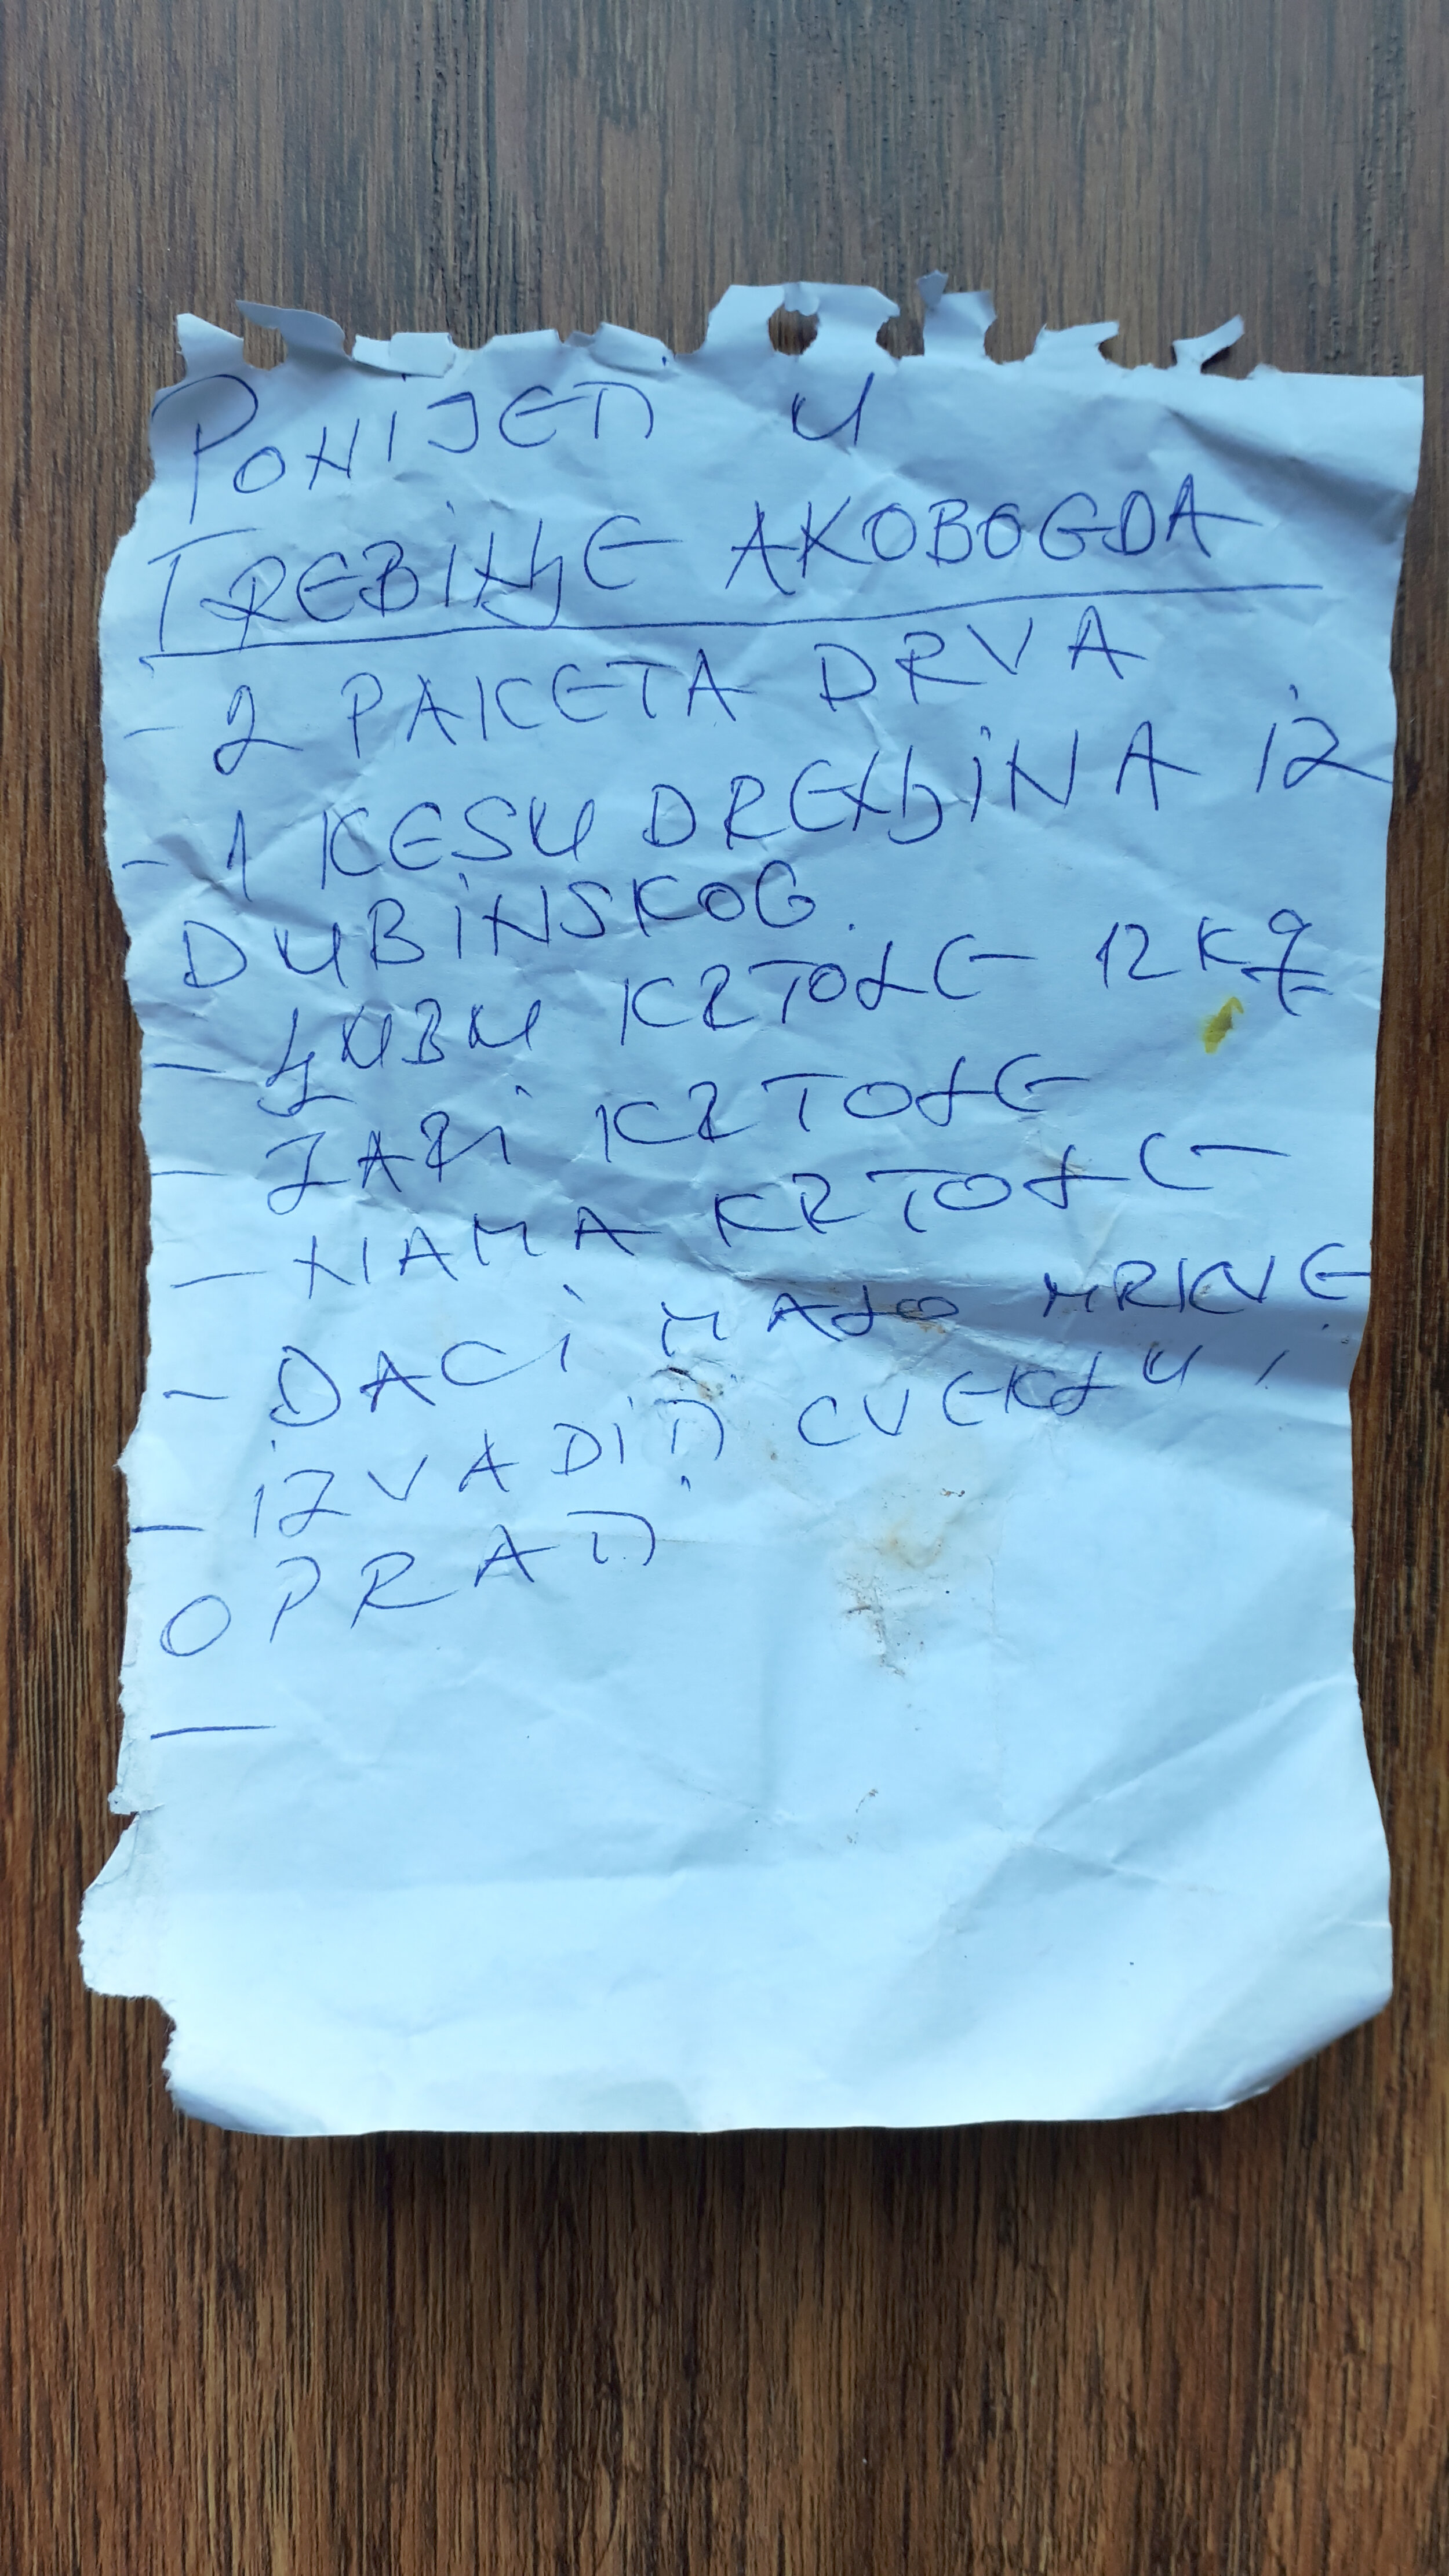 PONIJETI U
TREBIњE AKOBOGDA
- 2 PAKETA DRVA
- 1 KESU DREњINA IZ
DUBINSKOG.
- KRTOLE 12 Kg
- KRTOLE
- NAMA KRTOLE
- DACI MALO MRKVE
- IZVADITI CVEKLU I
OPRATI
-